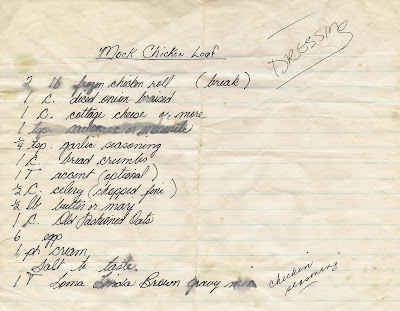 DRESSING
Mock Chicken Loaf
2 lb frozen chicken roll (break)
1 C. diced onion braised
1 C. cottage cheese or more
1 tsp. or
1/4 tsp. garlic seasoning
1 C. bread crumbs
1 T accent (optional)
1/2 C. celery (chopped fine)
1/2 lb butter or marg
1 C. Old Fashioned Oats
6 egg
1 pt cream
Salt to taste.
1 T Loma Linda Brown gravy
chicken seasoning